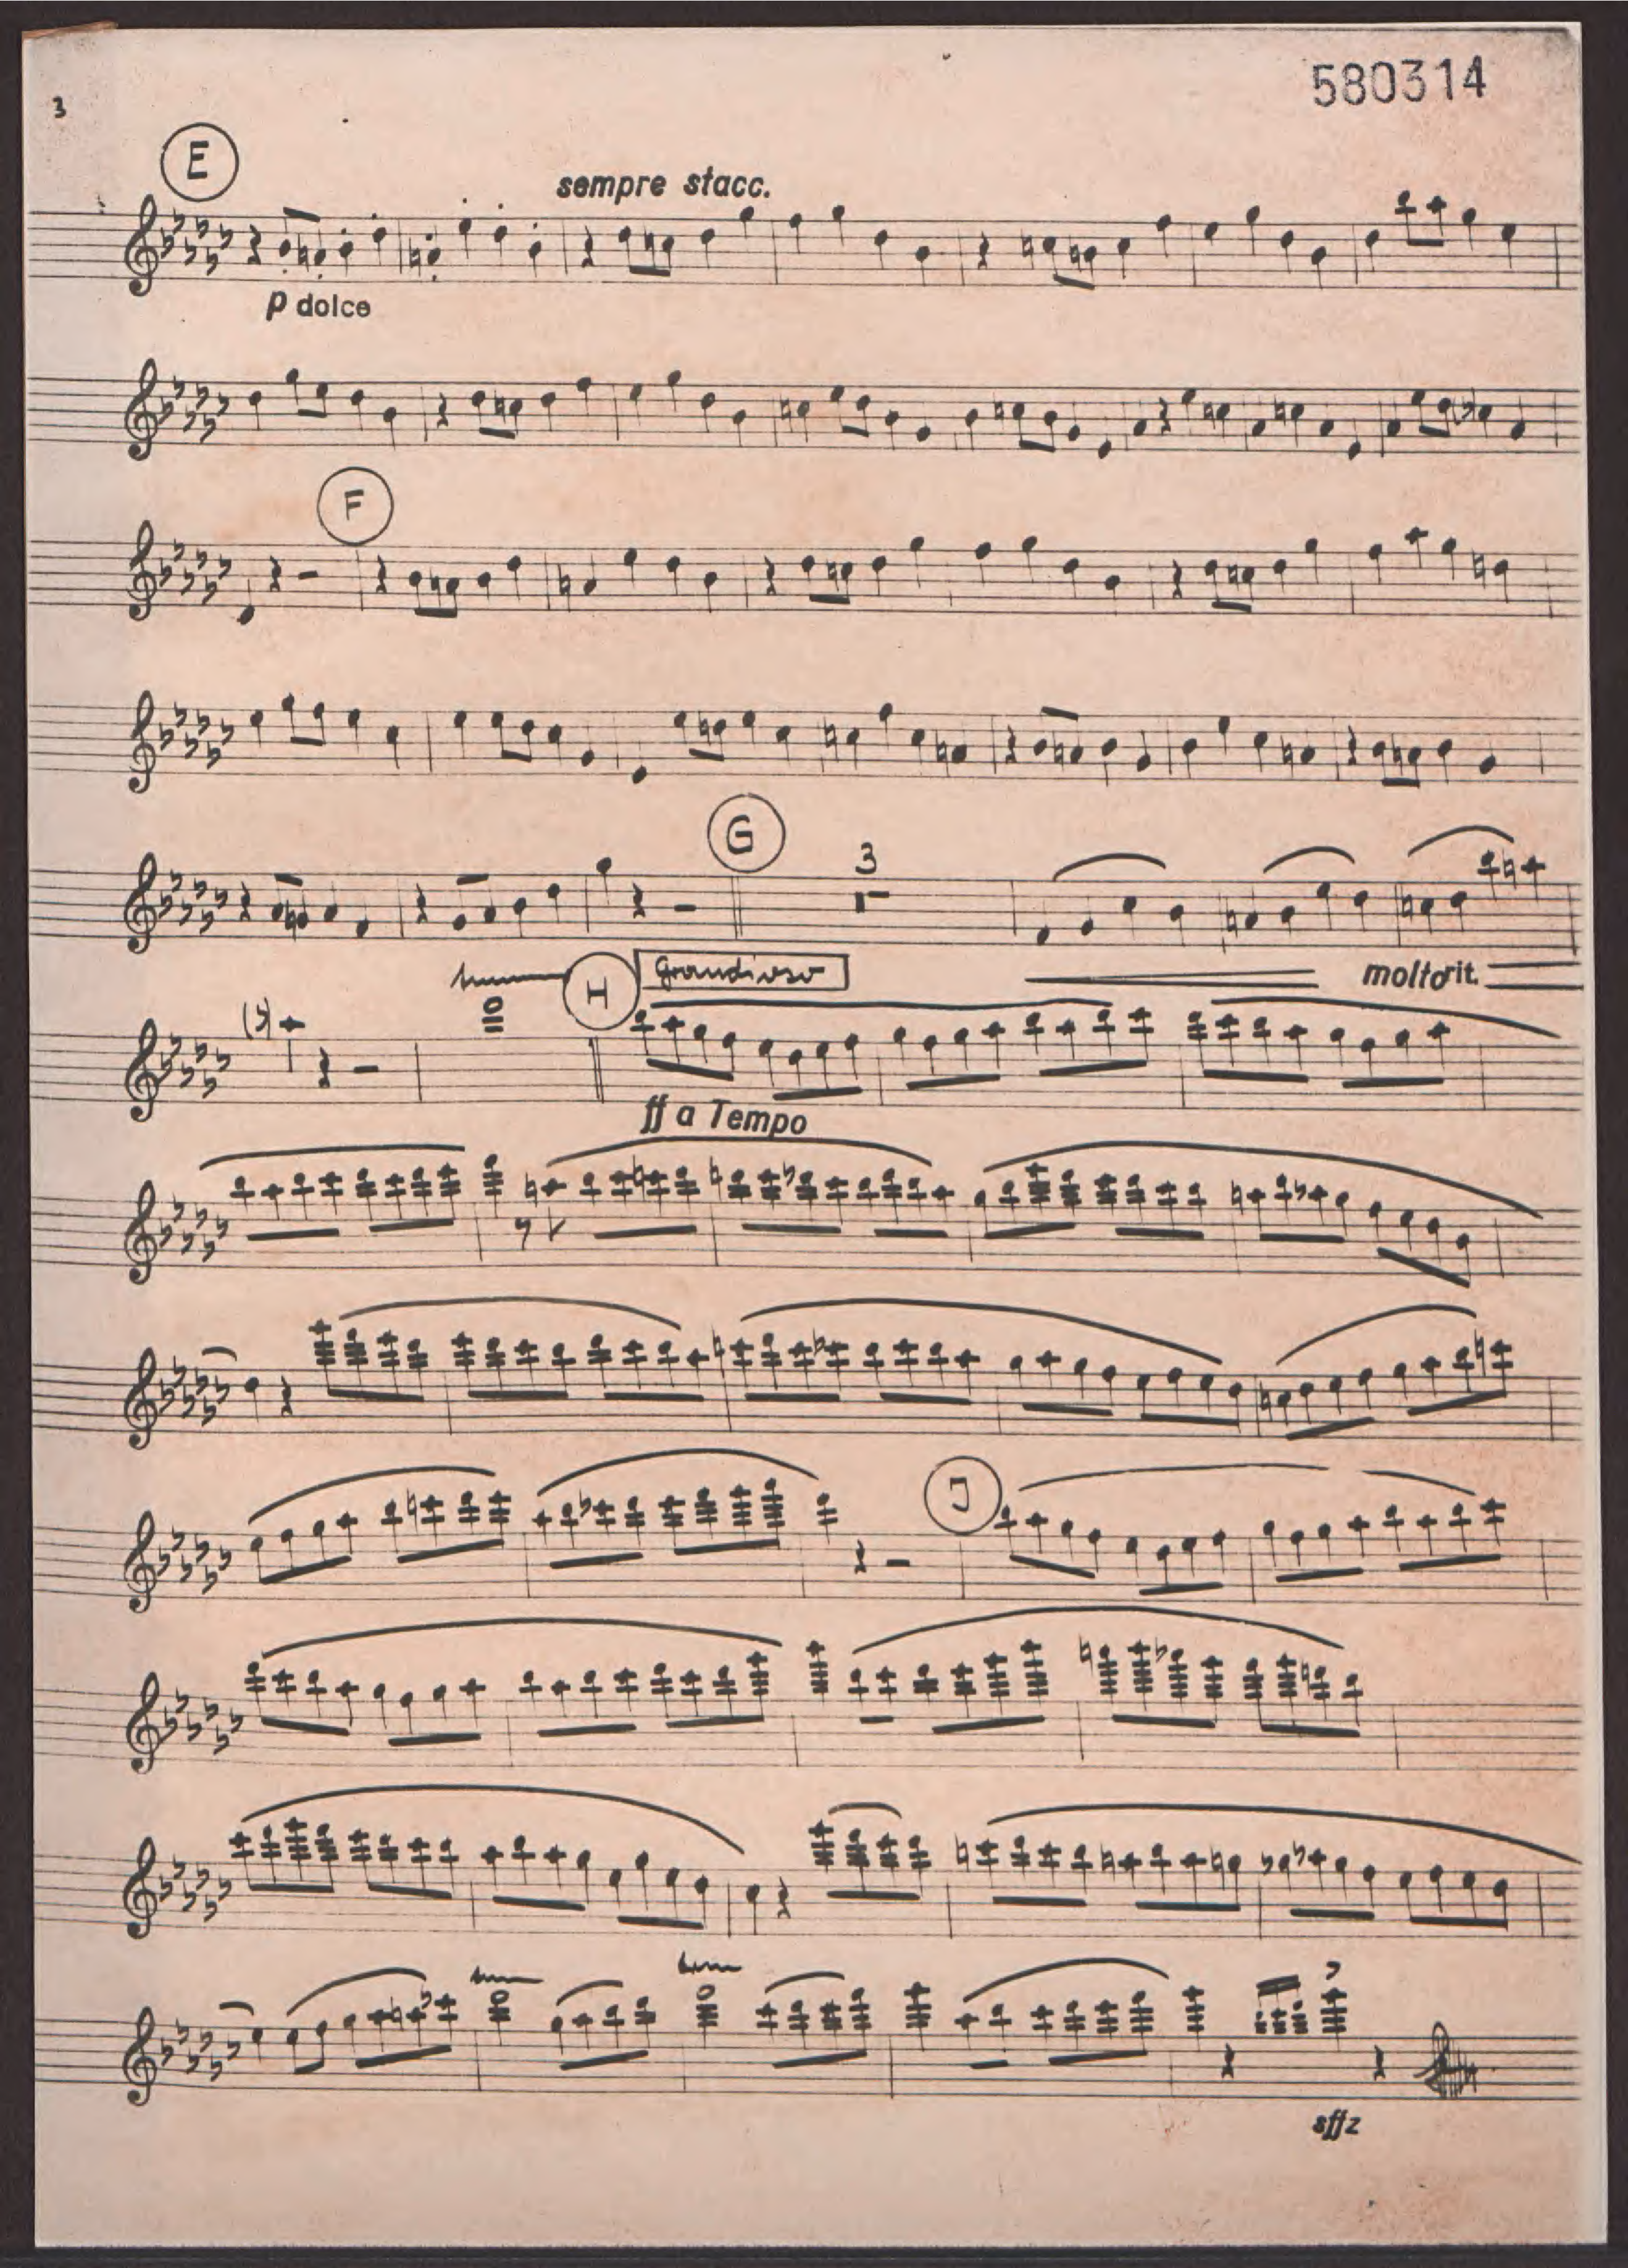 580314
3
E
sempre stacc.
p dolce
F
G
3
H
Grandioso
molto rit.
ff a Tempo
J
sffz